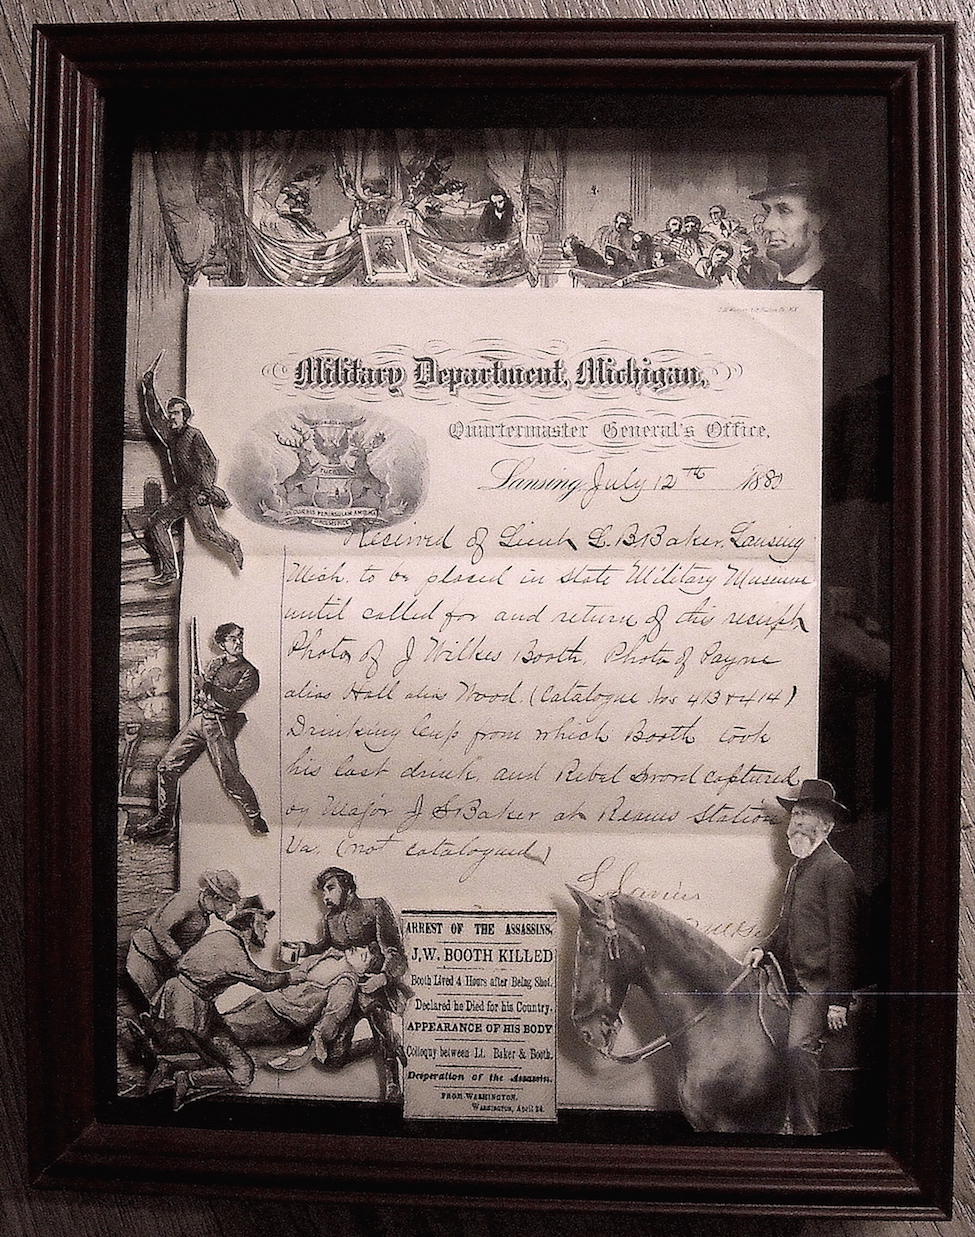 Military Department, Michigan,
Quartermaster General's Office,
Lansing, July 12th 188
TUEBOR
SI QUAERIS PENINSULAM AMOENAM
CIRCUMSPICE
Received of Lieut L. B Baker, Lansing
Mich. to be placed in State Military Museum
until called for and return of this receipt
Photo of J Wilkes Booth, Photo of Payne
alias Hall alias Wood. (Catalogue Nos 413 & 414)
Drinking Cup from which Booth took
his last drink, and Rebel Sword captured
by Major J S Baker at Reams Station
Va. (not catalogued)
ARREST OF THE ASSASSINS.
J.W. BOOTH KILLED
Booth Lived 4 Hours after Being Shot.
Declared he Died for his Country.
APPEARANCE OF HIS BODY
Colloquy between Lt. Baker & Booth.
Desperation of the Assassin.
FROM WASHINGTON.
WASHINGTON, April 24.